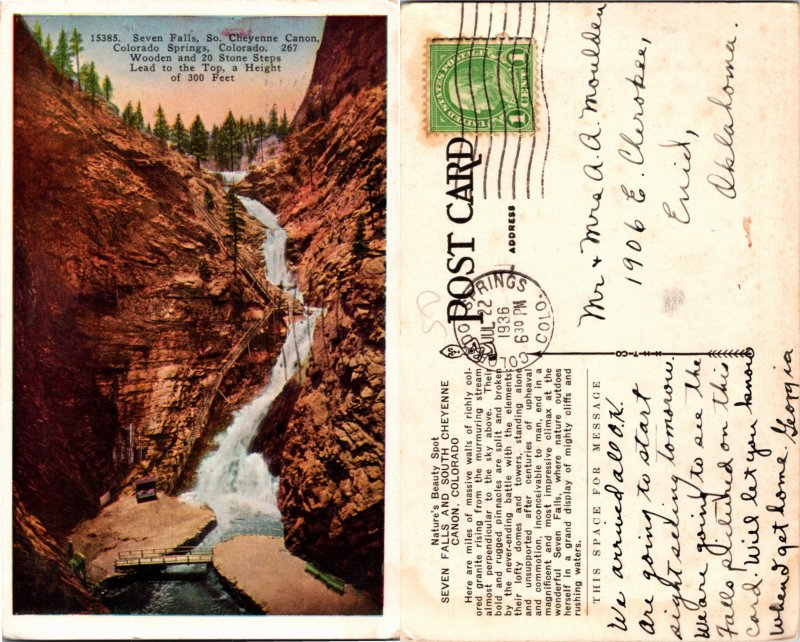 15385. Seven Falls, So. Cheyenne Canon,
Colorado Springs, Colorado. 267
Wooden and 20 Stone Steps
Lead to the Top, a Height
of 300 Feet
UNITED STATES POSTAGE
1 CENT 1
POST CARD
ADDRESS
COLORADO SPRINGS
JUL 22
1936
6 30 PM
COLO.
Mr + Mrs A. A. Moulden
1906 E. Cherokee,
Enid,
Oklahoma.
Nature's Beauty Spot
SEVEN FALLS AND SOUTH CHEYENNE
CANON, COLORADO
Here are miles of massive walls of richly col-
ored granite rising from the murmuring stream,
almost perpendicular to the sky above. Their
bold and rugged pinnacles are split and broken
by the never-ending battle with the elements;
their lofty domes and towers, standing alone
and unsupported after centuries of upheaval
and commotion, inconceivable to man, end in a
magnificent and most impressive climax at the
wonderful Seven Falls, where nature outdoes
herself in a grand display of mighty cliffs and
rushing waters.
THIS SPACE FOR MESSAGE
We arrived all O.K.
are going to start
sight seeing tomorrow.
We are going to see the
falls pictured on this
card. Will let you know
when I get home. Georgia